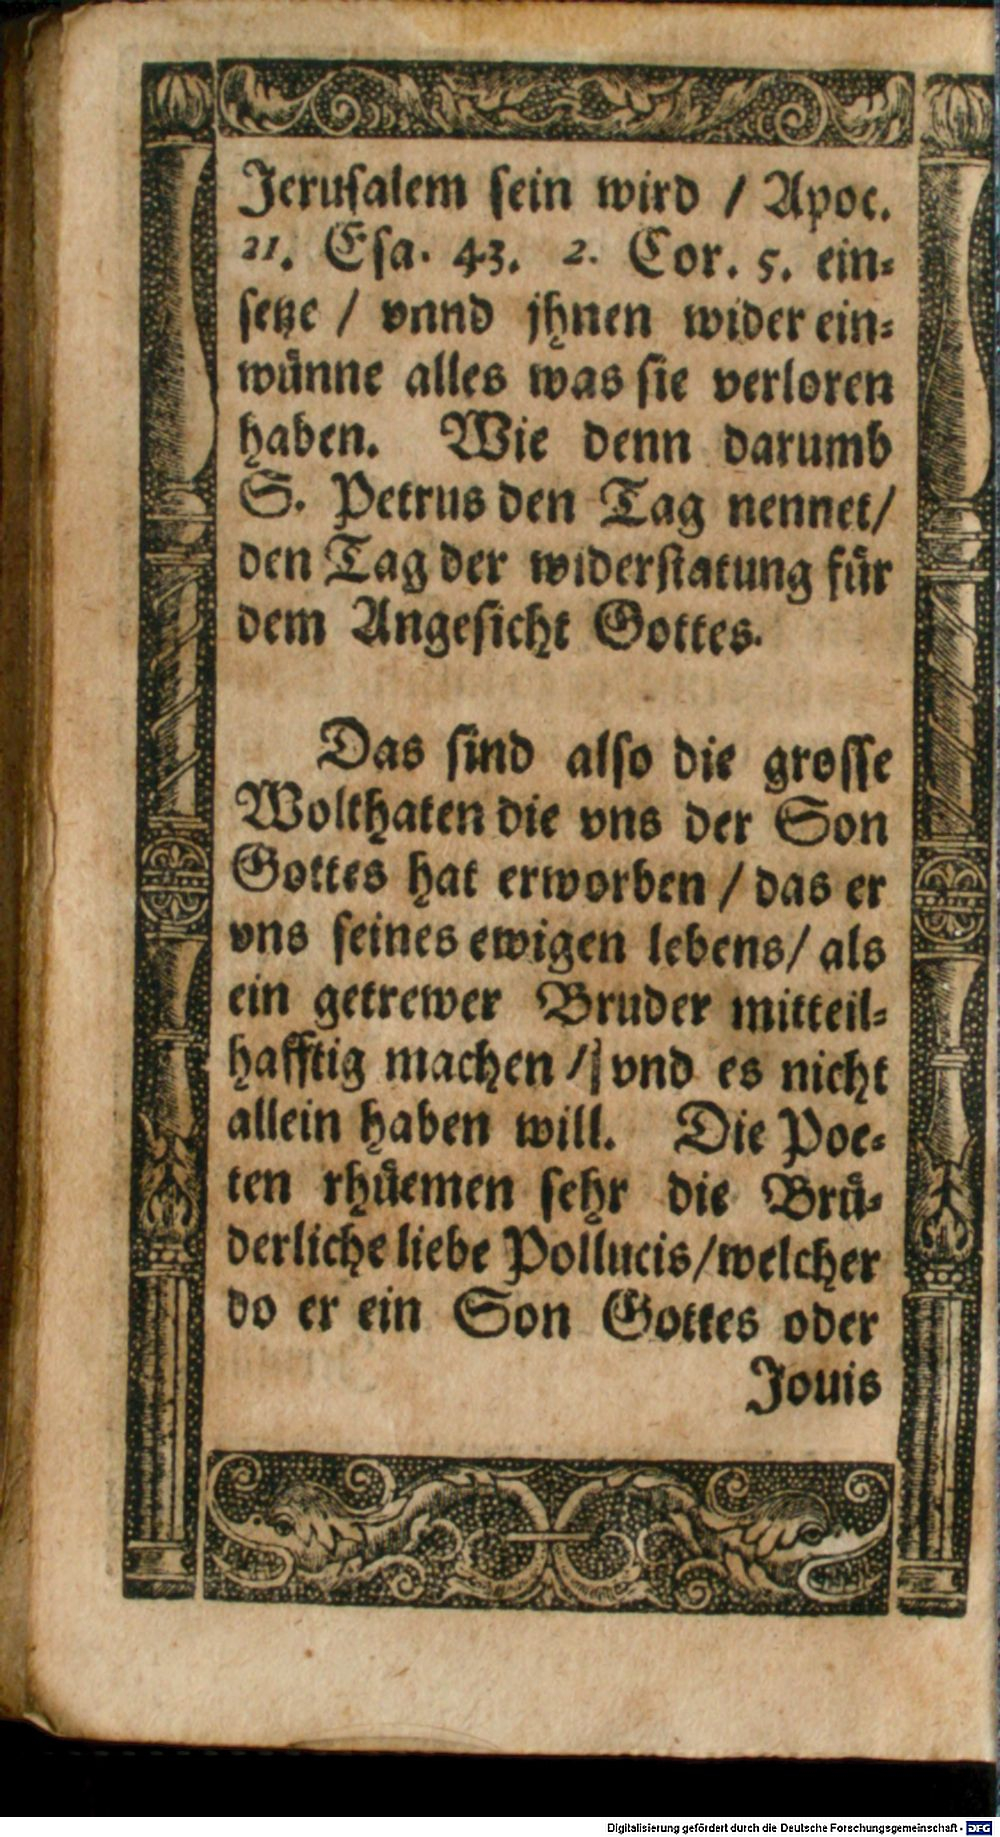 Jeruſalem ſein wird / Apoc.
21. Eſa. 43. 2. Cor. 5. ein⸗
ſetze / vnnd jhnen wider ein⸗
wuͤnne alles was ſie verloren
haben. Wie denn darumb
S. Petrus den Tag nennet/
den Tag der widerſtatung fuͤr
dem Angeſicht Gottes.
Das ſind alſo die groſſe
Wolthaten die vns der Son
Gottes hat erworben / das er
vns ſeines ewigen lebens/ als
ein getrewer Bruder mitteil⸗
hafftig machen / vnd es nicht
allein haben will. Die Poe⸗
ten rhuͤemen ſehr die Bruͤ⸗
derliche liebe Pollucis/welcher
do er ein Son Gottes oder
Jouis
Digitalisierung gefördert durch die Deutsche Forschungsgemeinschaft - DFG